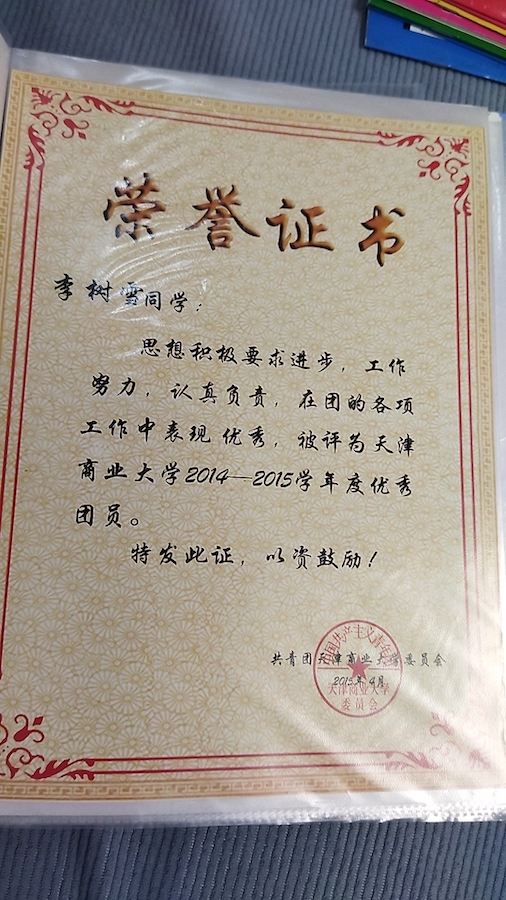 荣誉证书
李树雪同学：
思想积极要求进步，工作
努力，认真负责，在团的各项
工作中表现优秀，被评为天津
商业大学2014—2015学年度优秀
团员。
特发此证，以资鼓励！
共青团天津商业大学委员会
2015年4月
中国共产主义青年团
天津商业大学
委员会